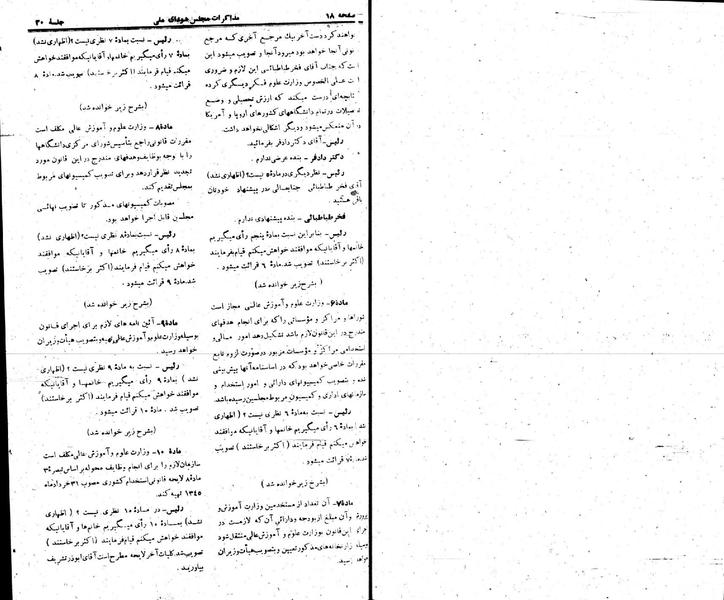 صفحه ۱۸
مذاکرات مجلس شورای ملی
جلسه ۳۰
خواهند کرد دست آخر بیك مرجع آخری که مرجع
نونی آنجا خواهد بود میرود آنجا و تصویب میشود این
است که جناب آقای فخر طباطبائی این لازم و ضروری
است علی الخصوص وزارت علوم فکر دیگری کرده
تابچه‌ای درست میکند که ارزش تحصیلی و وضع
تحصیلات در تمام دانشگاههای کشورهای اروپا و آمریکا
در آن منعکس میشود و دیگر اشکالی نخواهد داشت.
رئیس- آقای دکتر دادفر بفرمائید.
دکتر دادفر - بنده عرضی ندارم.
رئیس- نظر دیگری در ماده ۵ نیست؟ (اظهاری نشد)
آقای فخر طباطبائی جنابعالی در پیشنهاد خودتان
باقی هستید.
فخر طباطبائی - بنده پیشنهادی ندارم.
رئیس- بنابراین نسبت بماده پنجم رأی میگیریم
خانمها و آقایانیکه موافقند خواهش میکنم قیام بفرمایند
(اکثر برخاستند) تصویب شد. ماده ۶ قرائت میشود.
(بشرح زیر خوانده شد)
ماده۶- وزارت علوم و آموزش عالی مجاز است
شوراها و مراکز و مؤسساتی را که برای انجام هدفهای
مندرج در این قانون لازم باشد تشکیل دهد امور مالی و
استخدامی مراکز و مؤسسات مزبور در صورت لزوم تابع
مقررات خاصی خواهد بود که در اساسنامه آنها پیش بینی
شده و بتصویب کمیسیونهای دارائی و امور استخدام و
سازمانهای اداری و کمیسیون مربوط مجلسین رسیده باشد.
رئیس- نسبت بماده ۶ نظری نیست؟ (اظهاری
نشد) بماده ۶ رأی میگیریم خانمها و آقایانیکه موافقند
خواهش میکنم قیام فرمایند (اکثر برخاستند) تصویب
شد. ماده ۷ قرائت میشود.
(بشرح زیر خوانده شد)
ماده۷- آن تعداد از مستخدمین وزارت آموزش و
پرورش و آن مبلغ از بودجه و دارائی آن که لازمست در
اجرای این قانون بوزارت علوم و آموزش عالی منتقل شود
بوسیله وزارتخانه‌های مذکور تعیین و بتصویب هیأت وزیران
خواهد رسید.
رئیس- نسبت بماده ۷ نظری نیست؟ (اظهاری نشد)
بماده ۷ رأی میگیریم خانمها و آقایانیکه موافقند خواهش
میکنم قیام فرمایند (اکثر برخاستند) تصویب شد. ماده ۸
قرائت میشود.
(بشرح زیر خوانده شد)
ماده۸- وزارت علوم و آموزش عالی مکلف است
مقررات قانونی راجع بتأسیس شورای مرکزی دانشگاهها
را با توجه بوظایف و هدفهای مندرج در این قانون مورد
تجدید نظر قرار دهد و برای تصویب کمیسیونهای مربوط
بمجلس تقدیم کند.
مصوبات کمیسیونهای مذکور تا تصویب نهائی
مجلسین قابل اجرا خواهد بود.
رئیس- نسبت بماده ۸ نظری نیست؟ (اظهاری نشد)
بماده ۸ رأی میگیریم خانمها و آقایانیکه موافقند
خواهش میکنم قیام فرمایند (اکثر برخاستند) تصویب
شد. ماده ۹ قرائت میشود.
(بشرح زیر خوانده شد)
ماده۹- آئین نامه های لازم برای اجرای قانون
بوسیله وزارت علوم و آموزش عالی تهیه و بتصویب هیأت وزیران
خواهد رسید.
رئیس- نسبت به ماده ۹ نظری نیست؟ (اظهاری
نشد) بماده ۹ رأی میگیریم خانمها و آقایانیکه
موافقند خواهش میکنم قیام فرمایند (اکثر برخاستند)
تصویب شد. ماده ۱۰ قرائت میشود.
(بشرح زیر خوانده شد)
ماده ۱۰- وزارت علوم و آموزش عالی مکلف است
سازمان لازم را برای انجام وظایف محوله بر اساس تبصره ۳
ماده ۸ لایحه قانونی استخدام کشوری مصوب ۳۱ خرداد ماه
۱۳۴۵ تهیه کند.
رئیس- در ماده ۱۰ نظری نیست؟ (اظهاری
نشد) بماده ۱۰ رأی میگیریم خانمها و آقایانیکه
موافقند خواهش میکنم قیام فرمایند (اکثر برخاستند)
تصویب شد. کلیات آخر لایحه مطرح است آقای ابوذر تشریف
بیاورید.